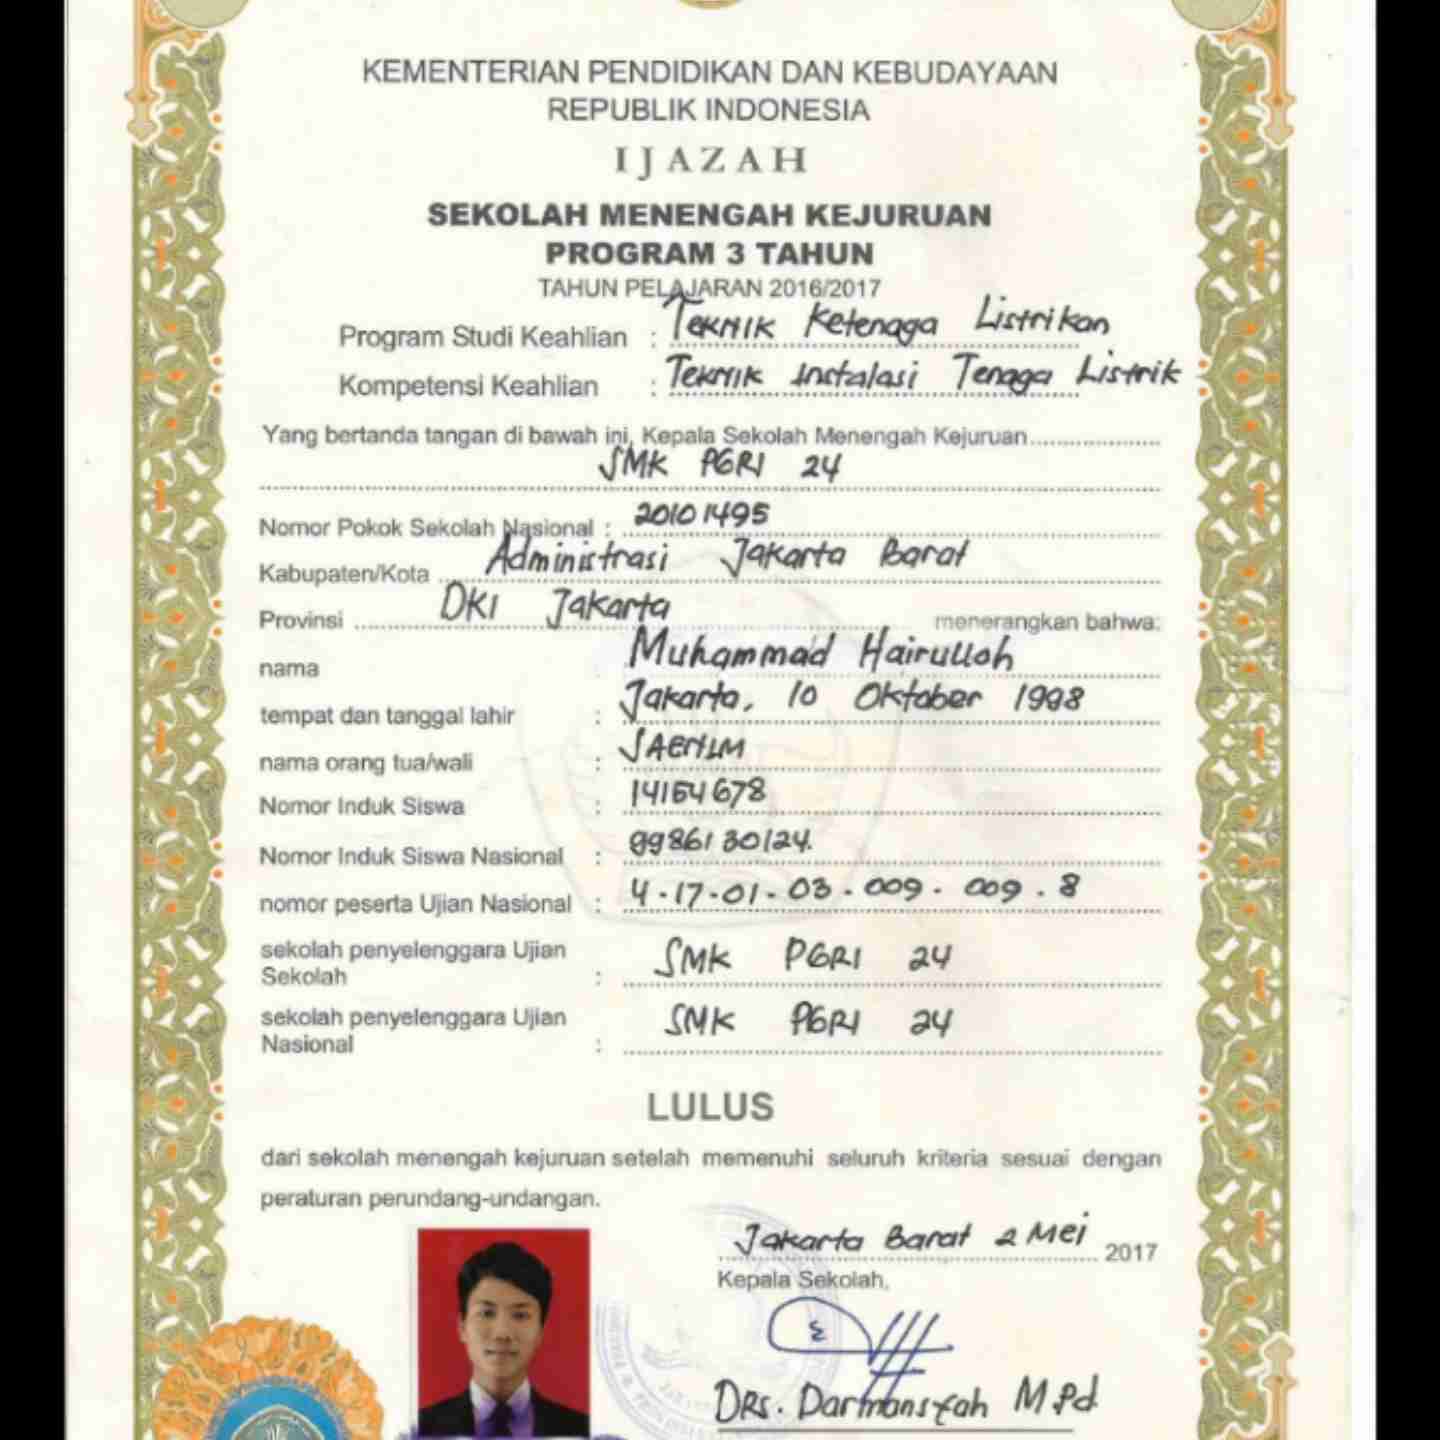 KEMENTERIAN PENDIDIKAN DAN KEBUDAYAAN
REPUBLIK INDONESIA
IJAZAH
SEKOLAH MENENGAH KEJURUAN
PROGRAM 3 TAHUN
TAHUN PELAJARAN 2016/2017
Program Studi Keahlian : Teknik Ketenaga Listrikan
Kompetensi Keahlian : Teknik Instalasi Tenaga Listrik
Yang bertanda tangan di bawah ini, Kepala Sekolah Menengah Kejuruan
SMK PGRI 24
Nomor Pokok Sekolah Nasional : 20101495
Kabupaten/Kota Administrasi Jakarta Barat
Provinsi DKI Jakarta menerangkan bahwa:
nama : Muhammad Hairulloh
tempat dan tanggal lahir : Jakarta, 10 Oktober 1998
nama orang tua/wali : SAENIM
Nomor Induk Siswa : 14154678
Nomor Induk Siswa Nasional : 9986130124.
nomor peserta Ujian Nasional : 4-17-01-03-009-009-8
sekolah penyelenggara Ujian
Sekolah : SMK PGRI 24
sekolah penyelenggara Ujian
Nasional : SMK PGRI 24
LULUS
dari sekolah menengah kejuruan setelah memenuhi seluruh kriteria sesuai dengan
peraturan perundang-undangan.
Jakarta Barat 2 Mei 2017
Kepala Sekolah,
Drs. Darmansyah M.Pd